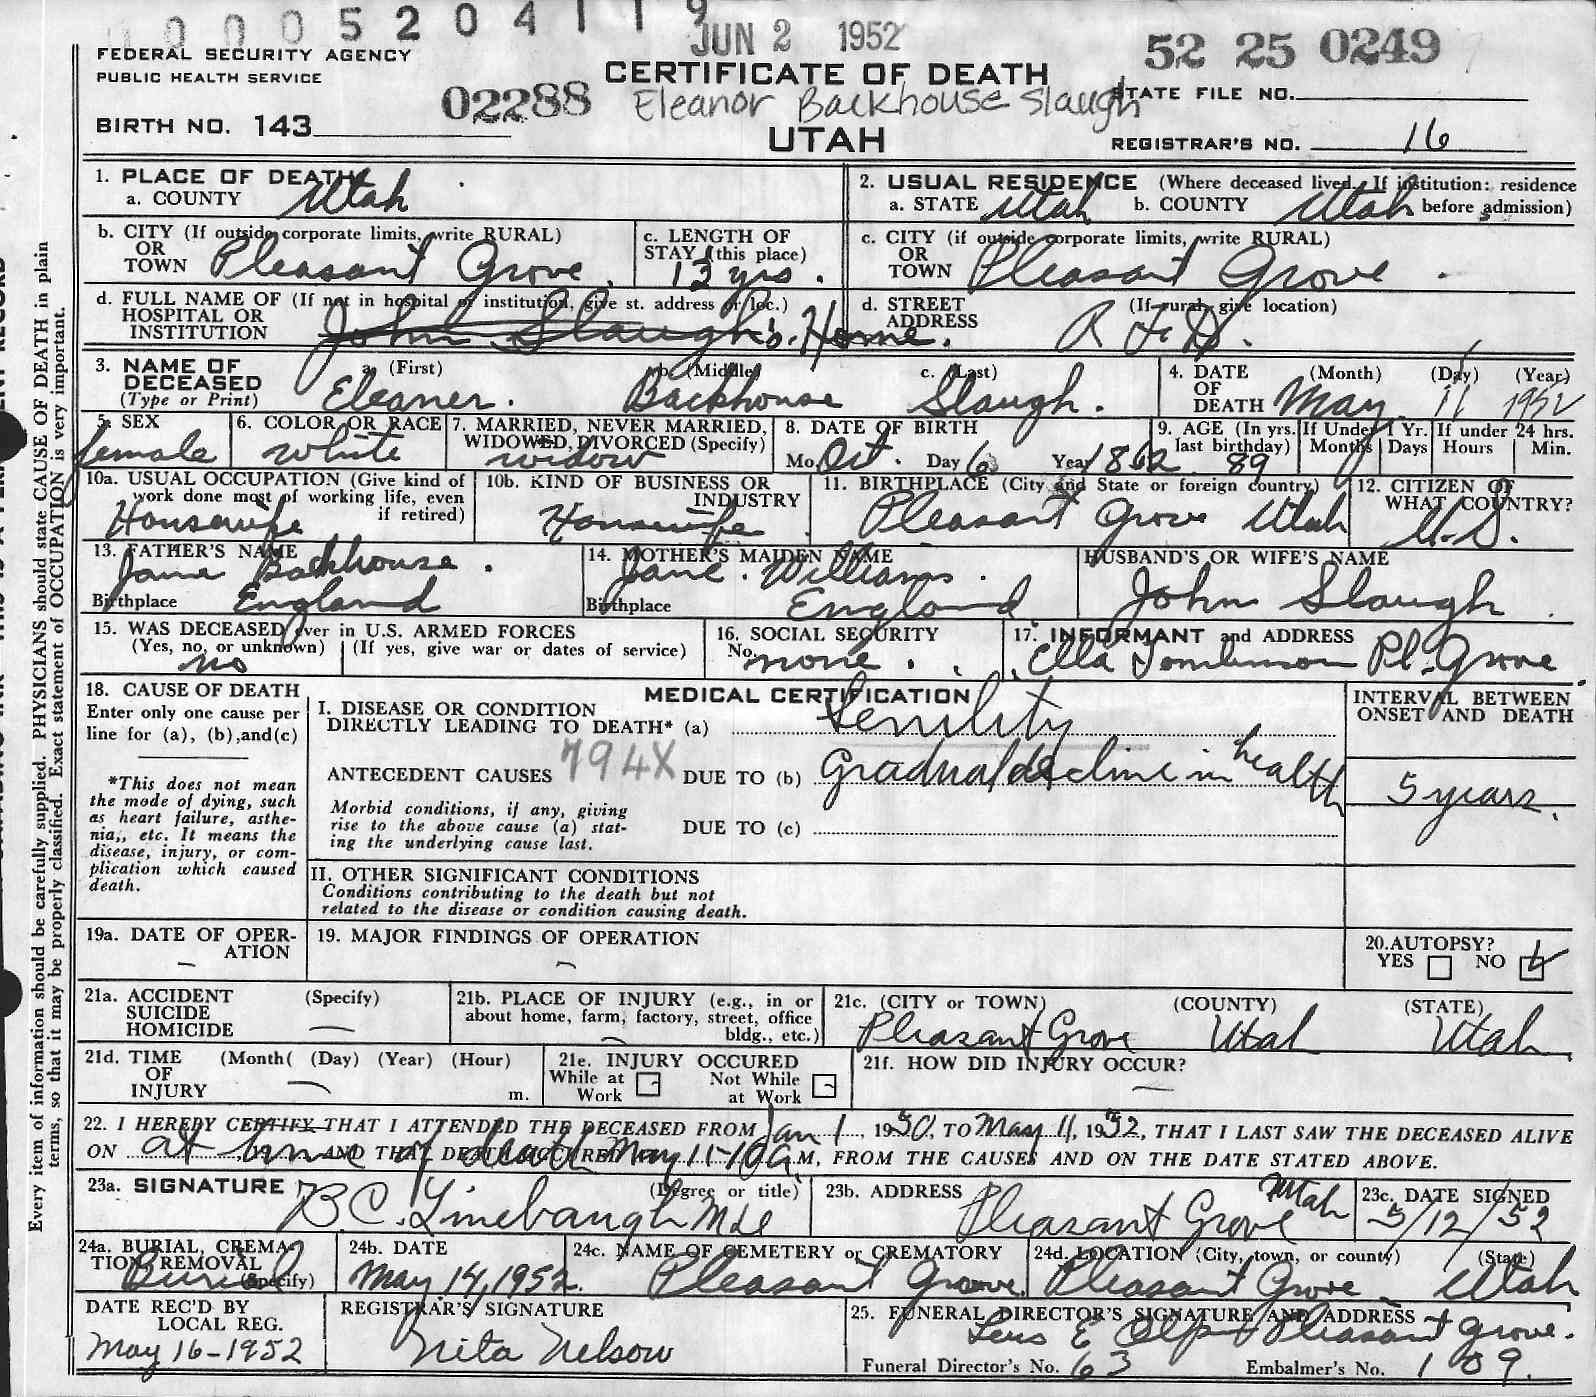 0005204119
JUN 2 1952
52 25 0249
FEDERAL SECURITY AGENCY
PUBLIC HEALTH SERVICE
CERTIFICATE OF DEATH
02288 Eleanor Backhouse Slaugh
STATE FILE NO.
BIRTH NO. 143
UTAH
REGISTRAR'S NO. 16
1. PLACE OF DEATH
a. COUNTY Utah
2. USUAL RESIDENCE (Where deceased lived. If institution: residence before admission)
a. STATE Utah b. COUNTY Utah
b. CITY (If outside corporate limits, write RURAL)
OR TOWN Pleasant Grove.
c. LENGTH OF STAY (this place)
13 yrs.
c. CITY (if outside corporate limits, write RURAL)
OR TOWN Pleasant Grove
d. FULL NAME OF (If not in hospital or institution, give st. address or loc.)
HOSPITAL OR INSTITUTION John Slaugh's. Home.
d. STREET ADDRESS (If rural, give location)
R F D.
3. NAME OF DECEASED (Type or Print)
a. (First) Eleaner.
b. (Middle) Backhouse
c. (Last) Slaugh.
4. DATE OF DEATH (Month) (Day) (Year)
May. 11 1952
5. SEX
female
6. COLOR OR RACE
white
7. MARRIED, NEVER MARRIED, WIDOWED, DIVORCED (Specify)
widow
8. DATE OF BIRTH
Mo. Oct. Day 6 Year 1862
9. AGE (In yrs. last birthday)
89
If Under 1 Yr. Months Days
If under 24 hrs. Hours Min.
10a. USUAL OCCUPATION (Give kind of work done most of working life, even if retired)
Housewife
10b. KIND OF BUSINESS OR INDUSTRY
Housewife
11. BIRTHPLACE (City and State or foreign country)
Pleasant Grove Utah
12. CITIZEN OF WHAT COUNTRY?
U.S.
13. FATHER'S NAME
Backhouse.
Birthplace England
14. MOTHER'S MAIDEN NAME
Jane. Williams.
Birthplace England
HUSBAND'S OR WIFE'S NAME
John Slaugh
15. WAS DECEASED Ever in U.S. ARMED FORCES
(Yes, no, or unknown) (If yes, give war or dates of service)
no
16. SOCIAL SECURITY No.
none.
17. INFORMANT and ADDRESS
Ella Tomlinson Pl. Grove.
18. CAUSE OF DEATH
Enter only one cause per line for (a), (b), and (c)
*This does not mean the mode of dying, such as heart failure, asthenia,, etc. It means the disease, injury, or complication which caused death.
MEDICAL CERTIFICATION
INTERVAL BETWEEN ONSET AND DEATH
I. DISEASE OR CONDITION DIRECTLY LEADING TO DEATH* (a) Senility
ANTECEDENT CAUSES 794X DUE TO (b) Gradual decline in health
5 years.
Morbid conditions, if any, giving rise to the above cause (a) stating the underlying cause last.
DUE TO (c)
II. OTHER SIGNIFICANT CONDITIONS
Conditions contributing to the death but not related to the disease or condition causing death.
19a. DATE OF OPERATION
—
19. MAJOR FINDINGS OF OPERATION
—
20. AUTOPSY?
YES NO
21a. ACCIDENT SUICIDE HOMICIDE (Specify)
—
21b. PLACE OF INJURY (e.g., in or about home, farm, factory, street, office bldg., etc.)
—
21c. (CITY or TOWN) (COUNTY) (STATE)
Pleasant Grove Utah Utah.
21d. TIME OF INJURY (Month( (Day) (Year) (Hour) m.
—
21e. INJURY OCCURED
While at Work Not While at Work
21f. HOW DID INJURY OCCUR?
—
22. I HEREBY CERTIFY THAT I ATTENDED THE DECEASED FROM Jan 1, 1950, TO May 11, 1952, THAT I LAST SAW THE DECEASED ALIVE
ON at time of death, 19 AND THAT DEATH OCCURRED May 11-10 A.M, FROM THE CAUSES AND ON THE DATE STATED ABOVE.
23a. SIGNATURE (Degree or title)
B C. Linebaugh Md
23b. ADDRESS
Pleasant Grove Utah
23c. DATE SIGNED
5/12/52
24a. BURIAL, CREMATION REMOVAL (Specify)
Burial
24b. DATE
May 14, 1952.
24c. NAME OF CEMETERY or CREMATORY
Pleasant Grove.
24d. LOCATION (City, town, or county) (State)
Pleasant Grove. Utah
DATE REC'D BY LOCAL REG.
May 16-1952
REGISTRAR'S SIGNATURE
Nita Nelson
25. FUNERAL DIRECTOR'S SIGNATURE AND ADDRESS
E Pleasant Grove.
Funeral Director's No. 63 Embalmer's No. 109.
Every item of information should be carefully supplied. PHYSICIANS should state CAUSE OF DEATH in plain
terms, so that it may be properly classified. Exact statement of OCCUPATION is very important.